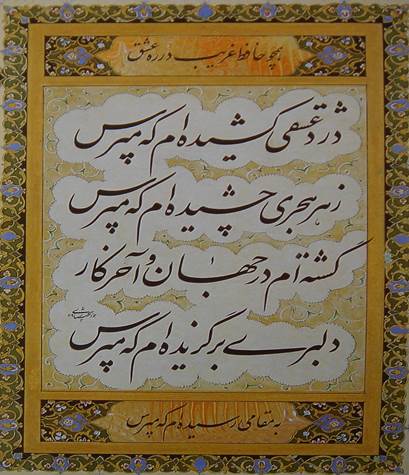 همچو حافظ غریب در ره عشق
درد عشقی کشیده‌ام که مپرس
زهر هجری چشیده‌ام که مپرس
گشته‌ام در جهان و آخر کار
دلبری برگزیده‌ام که مپرس
به مقامی رسیده‌ام که مپرس